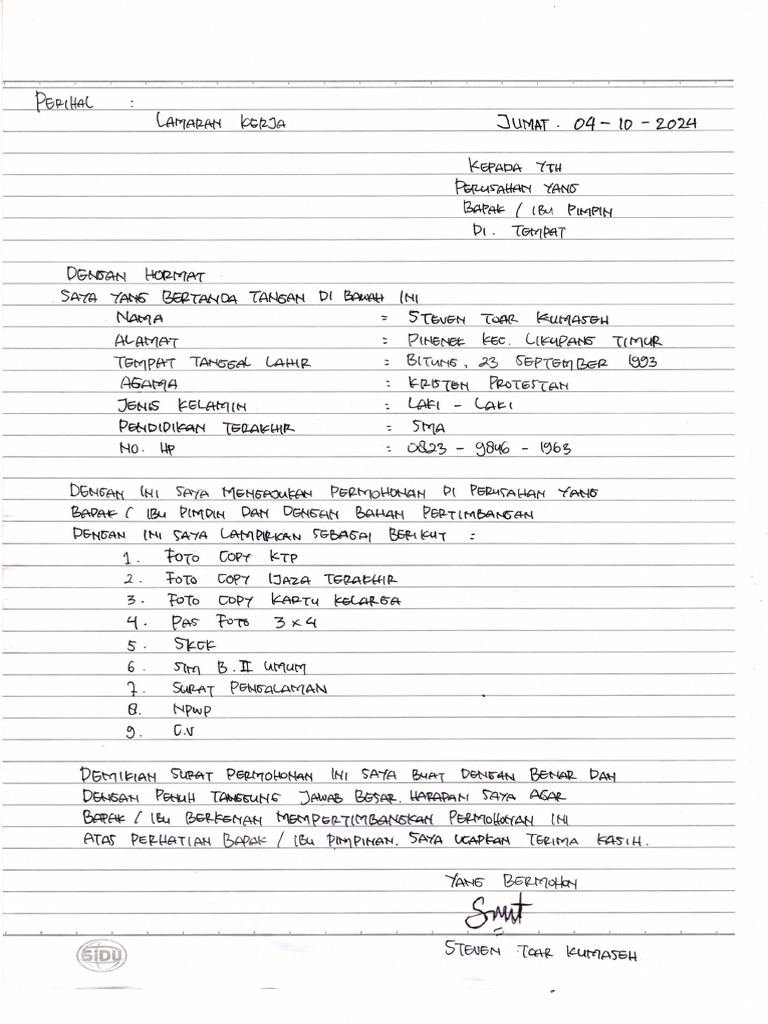 PERIHAL :
LAMARAN KERJA JUMAT. 04-10-2024
KEPADA YTH
PERUSAHAN YANG
BAPAK / IBU PIMPIN
DI. TEMPAT
DENGAN HORMAT
SAYA YANG BERTANDA TANGAN DI BAWAH INI
NAMA : STEVEN TOAR KUMASEH
ALAMAT : PINENEK KEC. LIKUPANG TIMUR
TEMPAT TANGGAL LAHIR : BITUNG, 23 SEPTEMBER 1993
AGAMA : KRISTEN PROTESTAN
JENIS KELAMIN : LAKI - LAKI
PENDIDIKAN TERAKHIR : SMA
NO. HP : 0823 - 9846 - 1963
DENGAN INI SAYA MENGAJUKAN PERMOHONAN DI PERUSAHAN YANG
BAPAK / IBU PIMPIN DAN DENGAN BAHAN PERTIMBANGAN
DENGAN INI SAYA LAMPIRKAN SEBAGAI BERIKUT :
1. FOTO COPY KTP
2. FOTO COPY IJAZA TERAKHIR
3. FOTO COPY KARTU KELARGA
4. PAS FOTO 3 x 4
5. SKCK
6. SIM B.II UMUM
7. SURAT PENGALAMAN
8. NPWP
9. C.V
DEMIKIAN SURAT PERMOHONAN INI SAYA BUAT DENGAN BENAR DAN
DENGAN PENUH TANGGUNG JAWAB BESAR. HARAPAN SAYA AGAR
BAPAK / IBU BERKENAN MEMPERTIMBANGKAN PERMOHONAN INI
ATAS PERHATIAN BAPAK / IBU PIMPINAN. SAYA UCAPKAN TERIMA KASIH.
YANG BERMOHON
STEVEN TOAR KUMASEH
SIDU